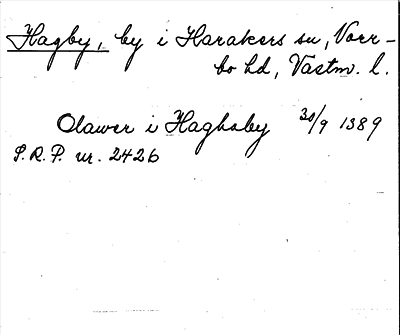 Hagby, by i Harakers sn, Norr-
bo hd, Västm. l.
Olawer i Haghaby 30/9 1389
S.R.P. nr. 2426